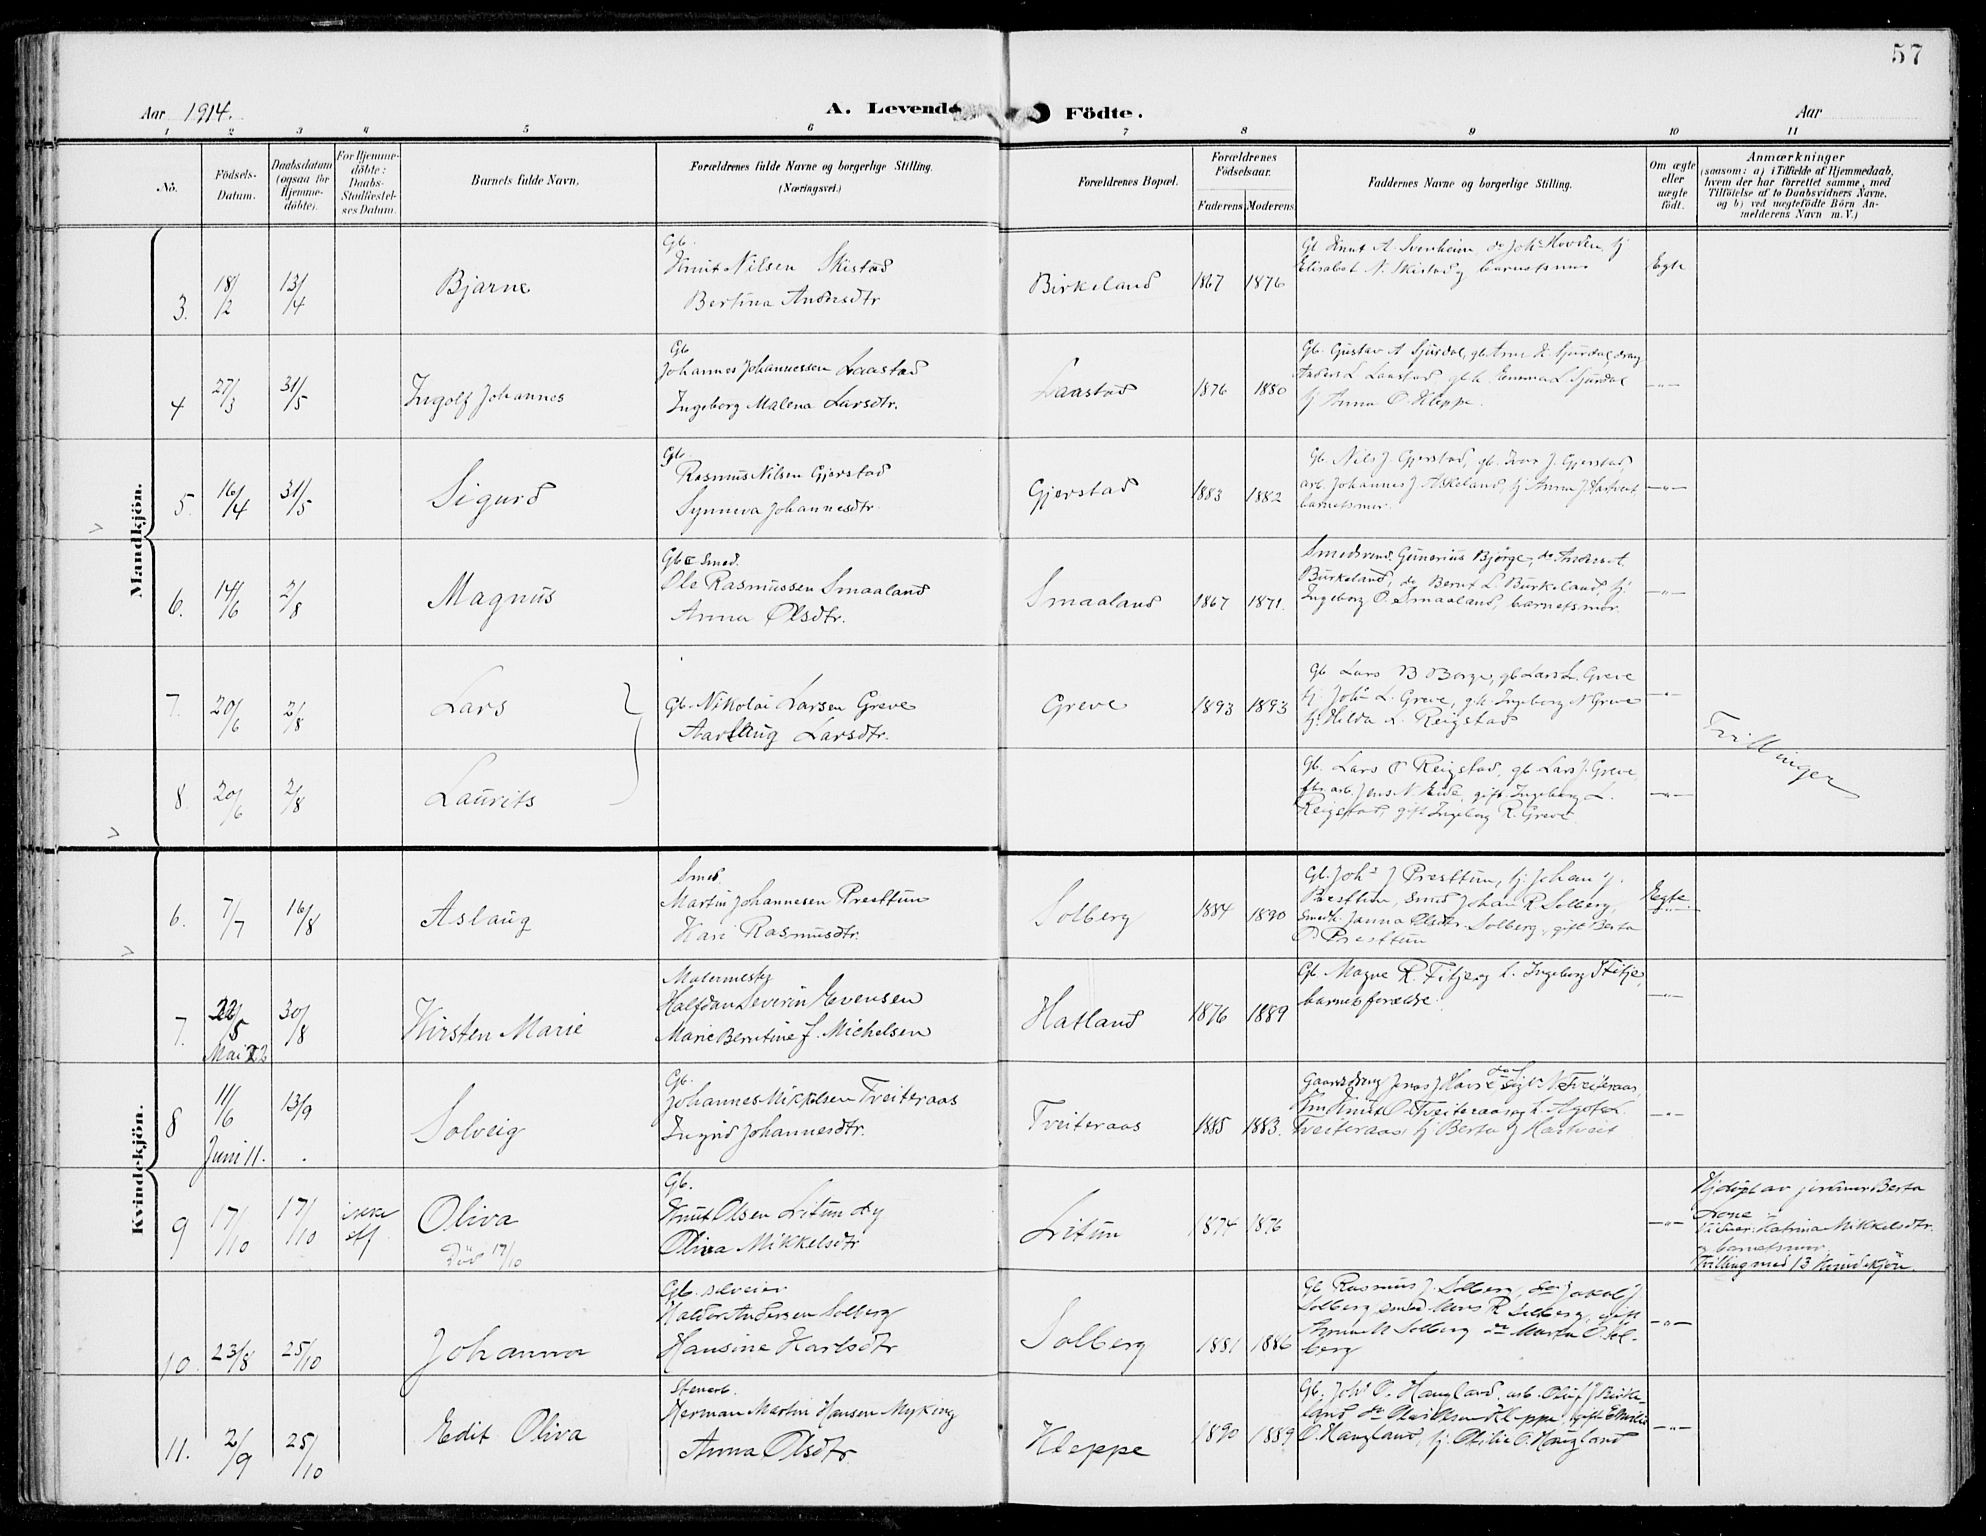 57
Aar 1914. A. Levende Födte. Aar
1 2 3 4 5 6 7 8 9 10 11
No.
Födsels-
Datum.
Daabsdatum
(ogsaa for
Hjemme-
döbte).
For Hjemme-
döbte:
Daabs-
Stadfæstel-
ses Datum.
Barnets fulde Navn.
Forældrenes fulde Navne og borgerlige Stilling.
(Næringsvei.)
Forældrenes Bopæl.
Forældrenes
Födselsaar.
Faderens Moderens
Faddernes Navne og borgerlige Stilling.
Om ægte
eller
uægte
födt.
Anmærkninger
(saasom: a) i Tilfælde af Hjemmedaab,
hvem der har forrettet samme, med
Tilföielse af to Daabsvidners Navne,
og b) ved uægtefödte Börn An-
melderens Navn m. V.)
Mandkjön.
3. 18/2 13/4 Bjarne
Gb.
Knut Nilsen Skistad
Bertina Andersdtr
Birkeland 1867 1876
Gb Knut A. Svenheim, do Johs Hovden, kj
Elisabet N. Skistad, barnets mor
Egte
4 27/3 31/5 Ingolf Johannes
Gb
Johannes Johannessen Laastad
Ingeborg Malena Larsdtr.
Laastad 1876 1880
Gb. Gustav A Sjurdal, gb Arne K. Sjurdal, drag
Anders L Laastad, gbk. Emma L. Sjurdal
kj Anna O. Kleppe.
-"-
5. 16/4 31/5 Sigurd
Gb.
Rasmus Nilsen Gjerstad
Synneva Johannesdtr.
Gjerstad 1883 1882
Gb. Nils J. Gjerstad, gb. Ivar J. Gjerstad,
arb. Johannes J Askeland, kj Anna J. Hartveit
barnets mor.
-"-
6. 14/6 2/8 Magnus
Gb & Smed.
Ole Rasmussen Smaaland
Anna Olsdtr.
Smaaland 1867 1871.
Smedsvend Gunerius Bjørge, do Anders A.
Burkeland, do Bernt L Burkeland, kj.
Ingeborg O. Smaaland, barnets mor.
-"-
7. 20/6 2/8 Lars
Gb. Nikolai Larsen Greve
Aaslaug Larsdtr.
Greve 1893 1893
Gb Lars B Borge, gb Lars L. Greve
kj. Johs L. Greve, gk. Ingeborg N Greve
kj. Hilda L. Reigstad
-"-
Tvillinger
8. 20/6 2/8 Laurits
Gb. Lars O Reigstad, gb Lars J. Greve,
fbr.arb. Jens N. Eide, gift Ingeborg L.
Reigstad, gift Ingeborg R. Greve.
-"-
Kvindekjön.
6. 7/7 16/8 Aslaug
Smed.
Martin Johannesen Presttun
Kari Rasmusdtr.
Solberg 1884 1890
Gb. Johs J Presttun, kj. Johan J.
Presttun, smed Johan R Solberg,
smedk. Janna Olsdtr. Solberg, gift Berta
O. Presttun
Egte.
-"-
7. 22/5 30/8 Kirsten Marie
Mai 22
Malermester
Halfdan Severin Evensen
Marie Berntine J. Michelsen
Hatland 1876 1889
Gb. Magne R. Fitje og h. Ingeborg Fitje,
barnets forældre.
-"-
8 11/6 13/9 Solveig
Juni 11.
Gb.
Johannes Mikkelsen Tveiteraas
Ingrid Johannesdtr.
Tveiteraas 1885 1883.
Gaardsdreng Jonas J Havre N Tveiteraas,
Knut O Tveiteraas og h. Agote L.
Tveiteraas, kj Berta J Hartveit
-"-
9 17/10 17/10 ikke stf. Oliva
Död 17/10
Gb.
Knut Olsen Litun og
Oliva Mikkelsdtr
Litun 1874 1876
-"-
Hjdöpt av jordmor Berta
Lone
Vidner: Katrina Mikkelsdtr.
og barnets mor,
Tvilling med 13 Kvindekjön
10. 23/8 25/10 Johanna
Gb. selveier
Haldor Andersen Solberg
Hansine Karlsdtr
Solberg 1881 1886
Gb Rasmus J. Solberg, do Jakob J.
Solberg, smed Mons R Solberg, gift
Anna M Solberg do Marta O. Sol-
berg
-"-
11. 2/9 25/10 Edit Oliva
Stenarb.
Herman Martin Hansen Myking
Anna Olsdtr
Kleppe 1890 1889
Gb. Johs O. Haugland, arb. Oluf J Birke-
land, do Kleppe, gift Emilie
O. Haugland, kj. Otilie O. Haugland
-"-